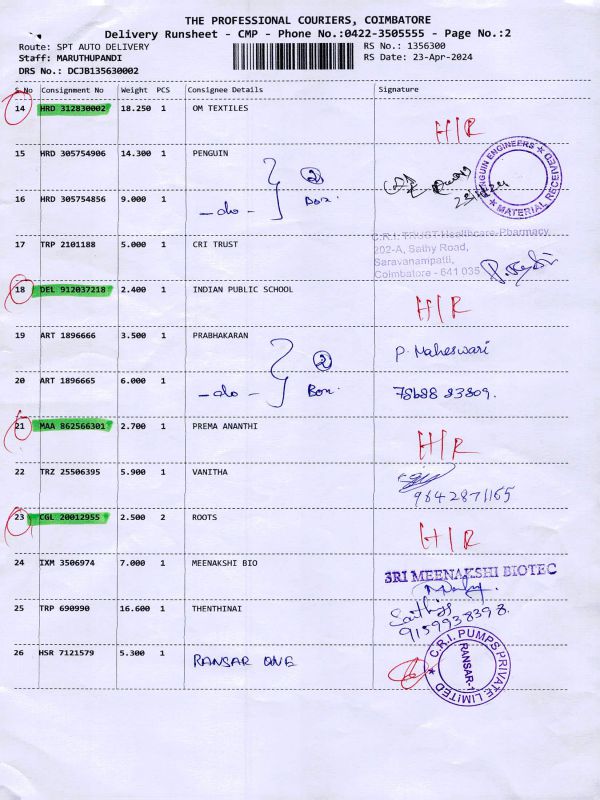 THE PROFESSIONAL COURIERS, COIMBATORE
Delivery Runsheet - CMP - Phone No.:0422-3505555 - Page No.:2
Route: SPT AUTO DELIVERY RS No.: 1356300
Staff: MARUTHUPANDI RS Date: 23-Apr-2024
DRS No.: DCJB135630002
S.No Consignment No Weight PCS Consignee Details Signature
14 HRD 312830002 18.250 1 OM TEXTILES H/R
15 HRD 305754906 14.300 1 PENGUIN 2 Box.
PENGUIN ENGINEERS ★ MATERIAL RECEIVED ★
16 HRD 305754856 9.000 1 -do-
17 TRP 2101188 5.000 1 CRI TRUST
C.R.I. TRUST Healthcare Pharmacy
202-A, Sathy Road,
Saravanampatti,
Coimbatore - 641 035
18 DEL 912037218 2.400 1 INDIAN PUBLIC SCHOOL H/R
19 ART 1896666 3.500 1 PRABHAKARAN 2 Box. P. Maheswari
20 ART 1896665 6.000 1 -do-
21 MAA 862566301 2.700 1 PREMA ANANTHI H/R
22 TRZ 25506395 5.900 1 VANITHA
23 CGL 20012955 2.500 2 ROOTS H/R
24 IXM 3506974 7.000 1 MEENAKSHI BIO SRI MEENAKSHI BIOTEC
25 TRP 690990 16.600 1 THENTHINAI 9159938398.
26 HSR 7121579 5.300 1 RANSAR ONE
C.R.I. PUMPS PRIVATE LIMITED ★ RANSAR-1